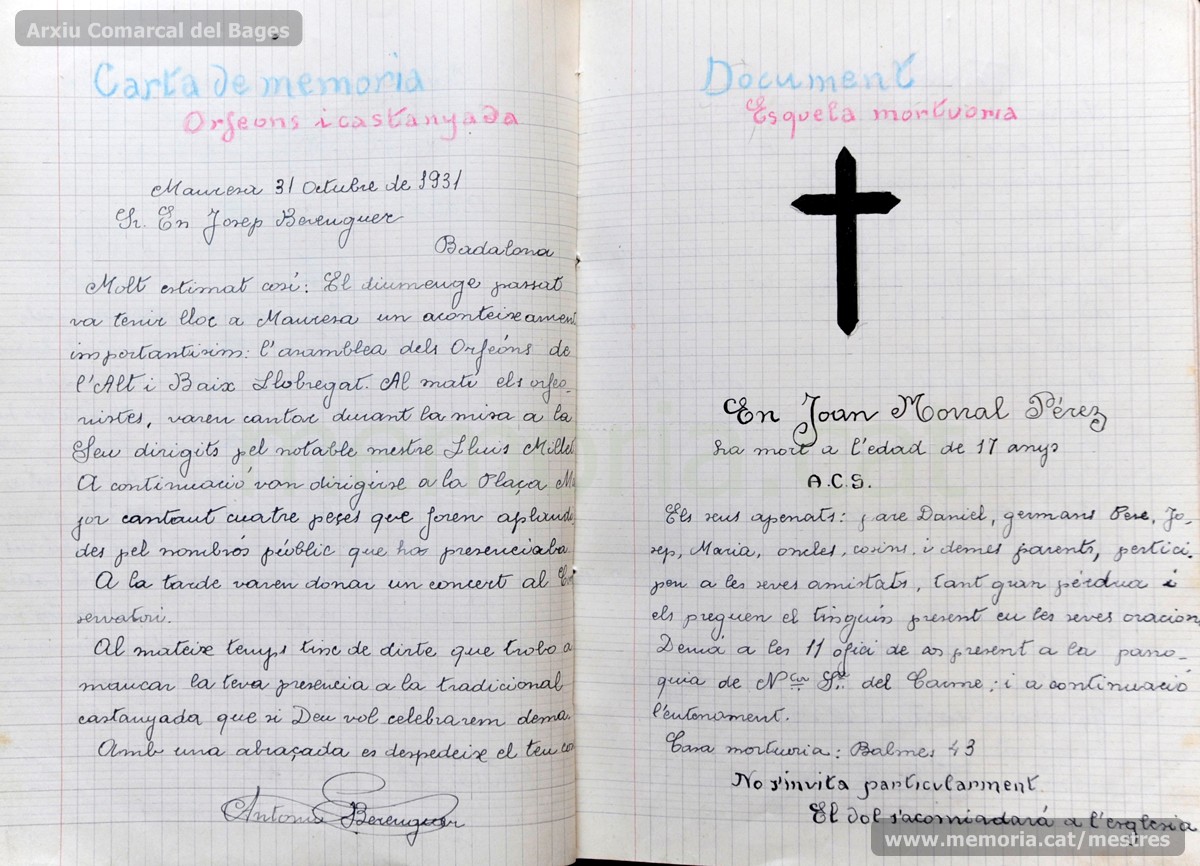 Arxiu Comarcal del Bages
Carta de memoria
Orfeons i castanyada
Manresa 31 Octubre de 1931
Sr. En Josep Berenguer
Badalona
Molt estimat cosí: El diumenge passat
va tenir lloc a Manresa un aconteixement
importantisim: l'asamblea dels Orfeóns de
l'Alt i Baix Llobregat. Al mati els orfeo-
nistes, varen cantar durant la misa a la
Seu dirigits pel notable mestre Lluis Millet
A continuació van dirigirse a la Plaça Ma
jor cantant cuatre peçes que foren aplaudi
des pel nombrós públic que ho presenciaba
A la tarde varen donar un concert al Con
servatori.
Al mateix temps tinc de dirte que trobo a
mancar la teva presencia a la tradicional
castanyada que si Deu vol celebrarem demà.
Amb una abraçada es despedeix el teu co
Antoni Berenguer
Document
Esquela mortuoria
En Joan Morral Pérez
ha mort a l'edad de 17 anys
A.C.S.
Els seus apenats: pare Daniel, germans Pere, Jo-
sep, Maria, oncles, cosins, i demes parents, pertici-
pen a les seves amistats, tant gran pérdua i
els preguen el tinguin present en les seves oracions
Demà a les 11 ofici de cos present a la parro-
quia de Nª Sª del Carme; i a continuació
l'enterrament.
Casa mortuoria: Balmes 43
No s'invita particularment.
El dol s'acomiadará a l'esglesia
www.memoria.cat/mestres